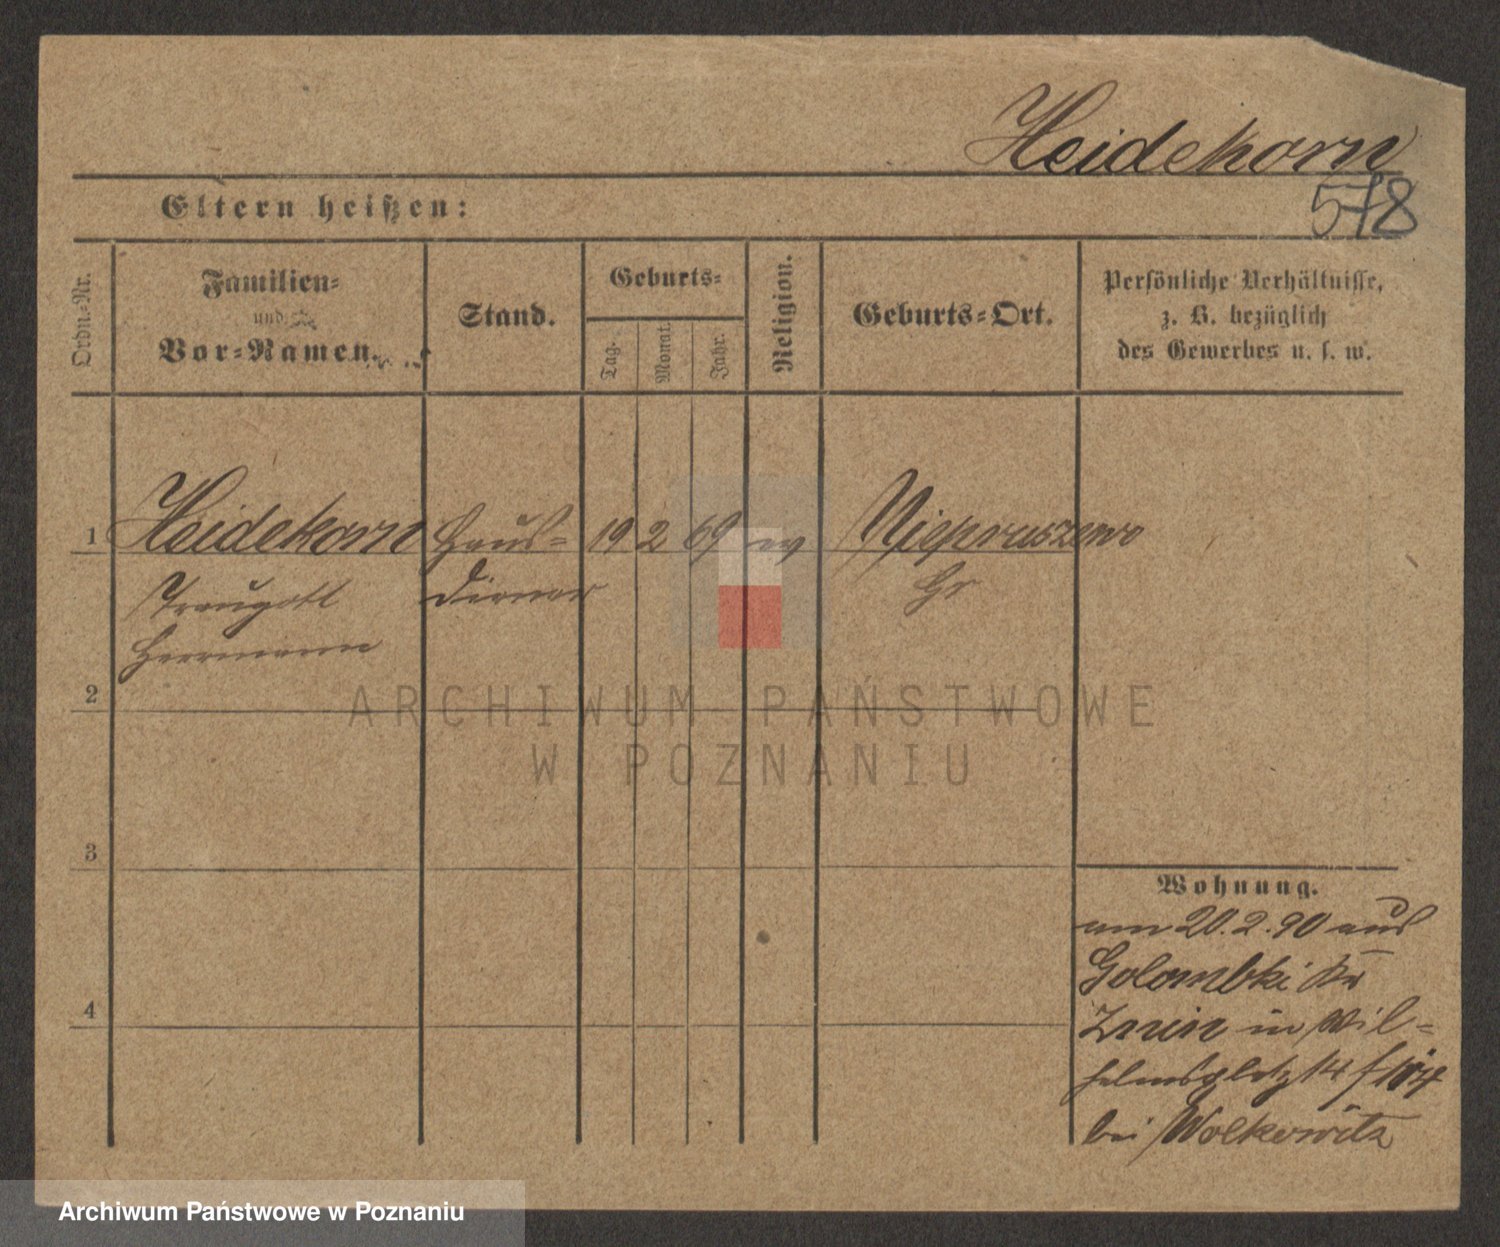 Heidekorn
578
Eltern heißen:
Ordn.-Nr.
Familien-
und
Vor-Namen.
Stand.
Geburts-
Tag.
Monat.
Jahr.
Religion.
Geburts-Ort.
Persönliche Verhältnisse,
z. B. bezüglich
des Gewerbes u. s. w.
1 Heidekorn Haus- 19 2 69 ev Niepruszewo
Traugott diener
Herrmann
2
3
4
Wohnung.
am 20.2.90 aus
Golombki Kr
Znin in Wil-
helmsplatz 14
bei Wolkowitz
ARCHIWUM PAŃSTWOWE
W POZNANIU
Archiwum Państwowe w Poznaniu